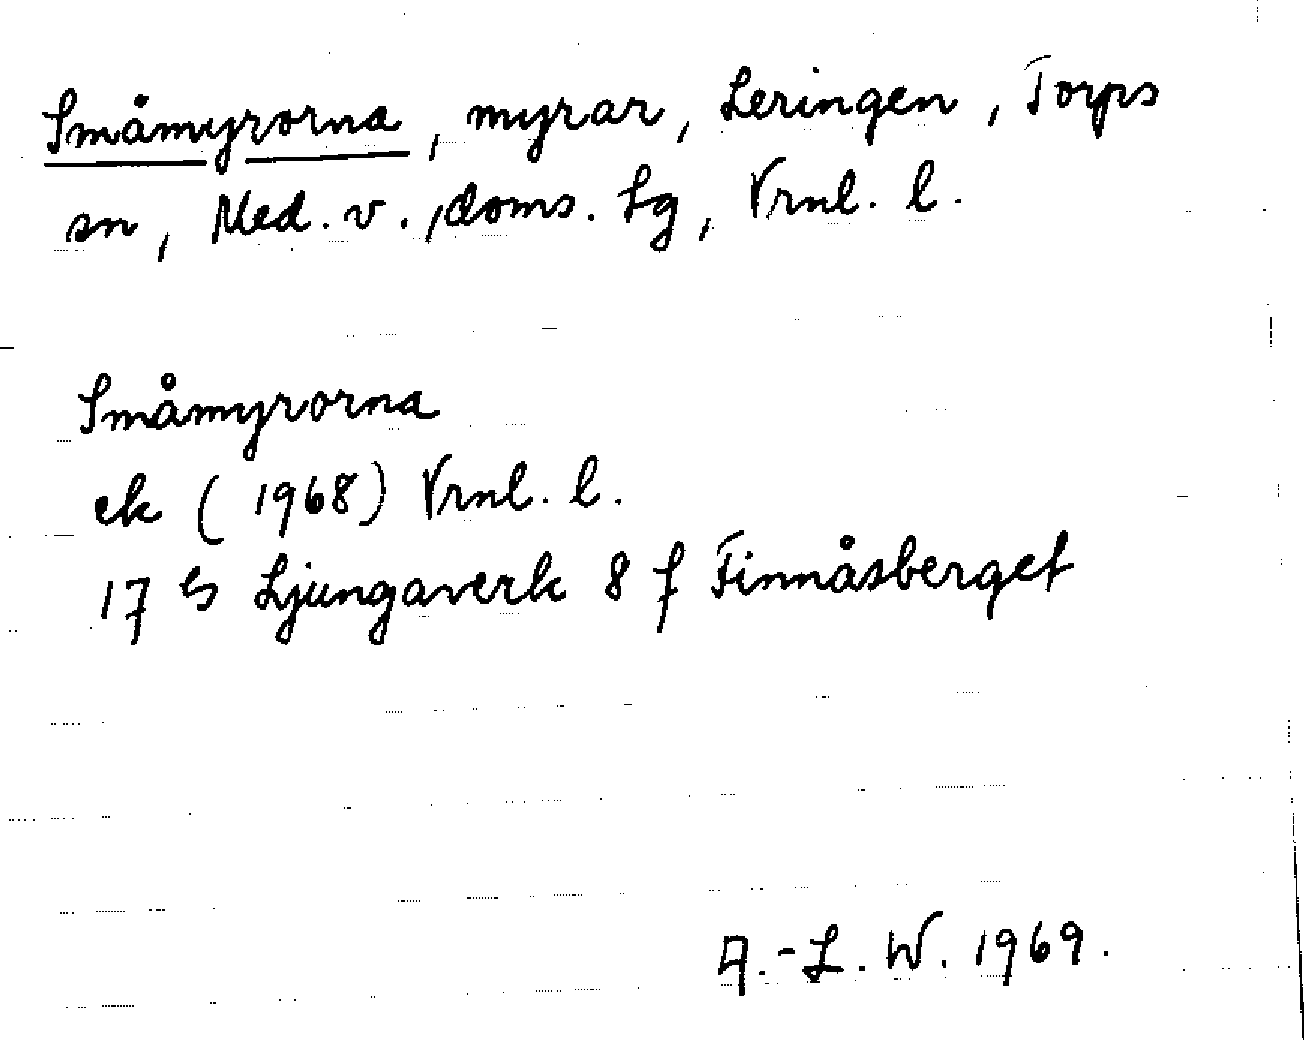 Småmyrorna, myrar, Leringen, Torps
sn, Med. v., doms. lg, Vrnl. l.
Småmyrorna
ek (1968) Vrnl. l.
17 G Ljungaverk 8 f Finnåsberget
A.-L. W. 1969.